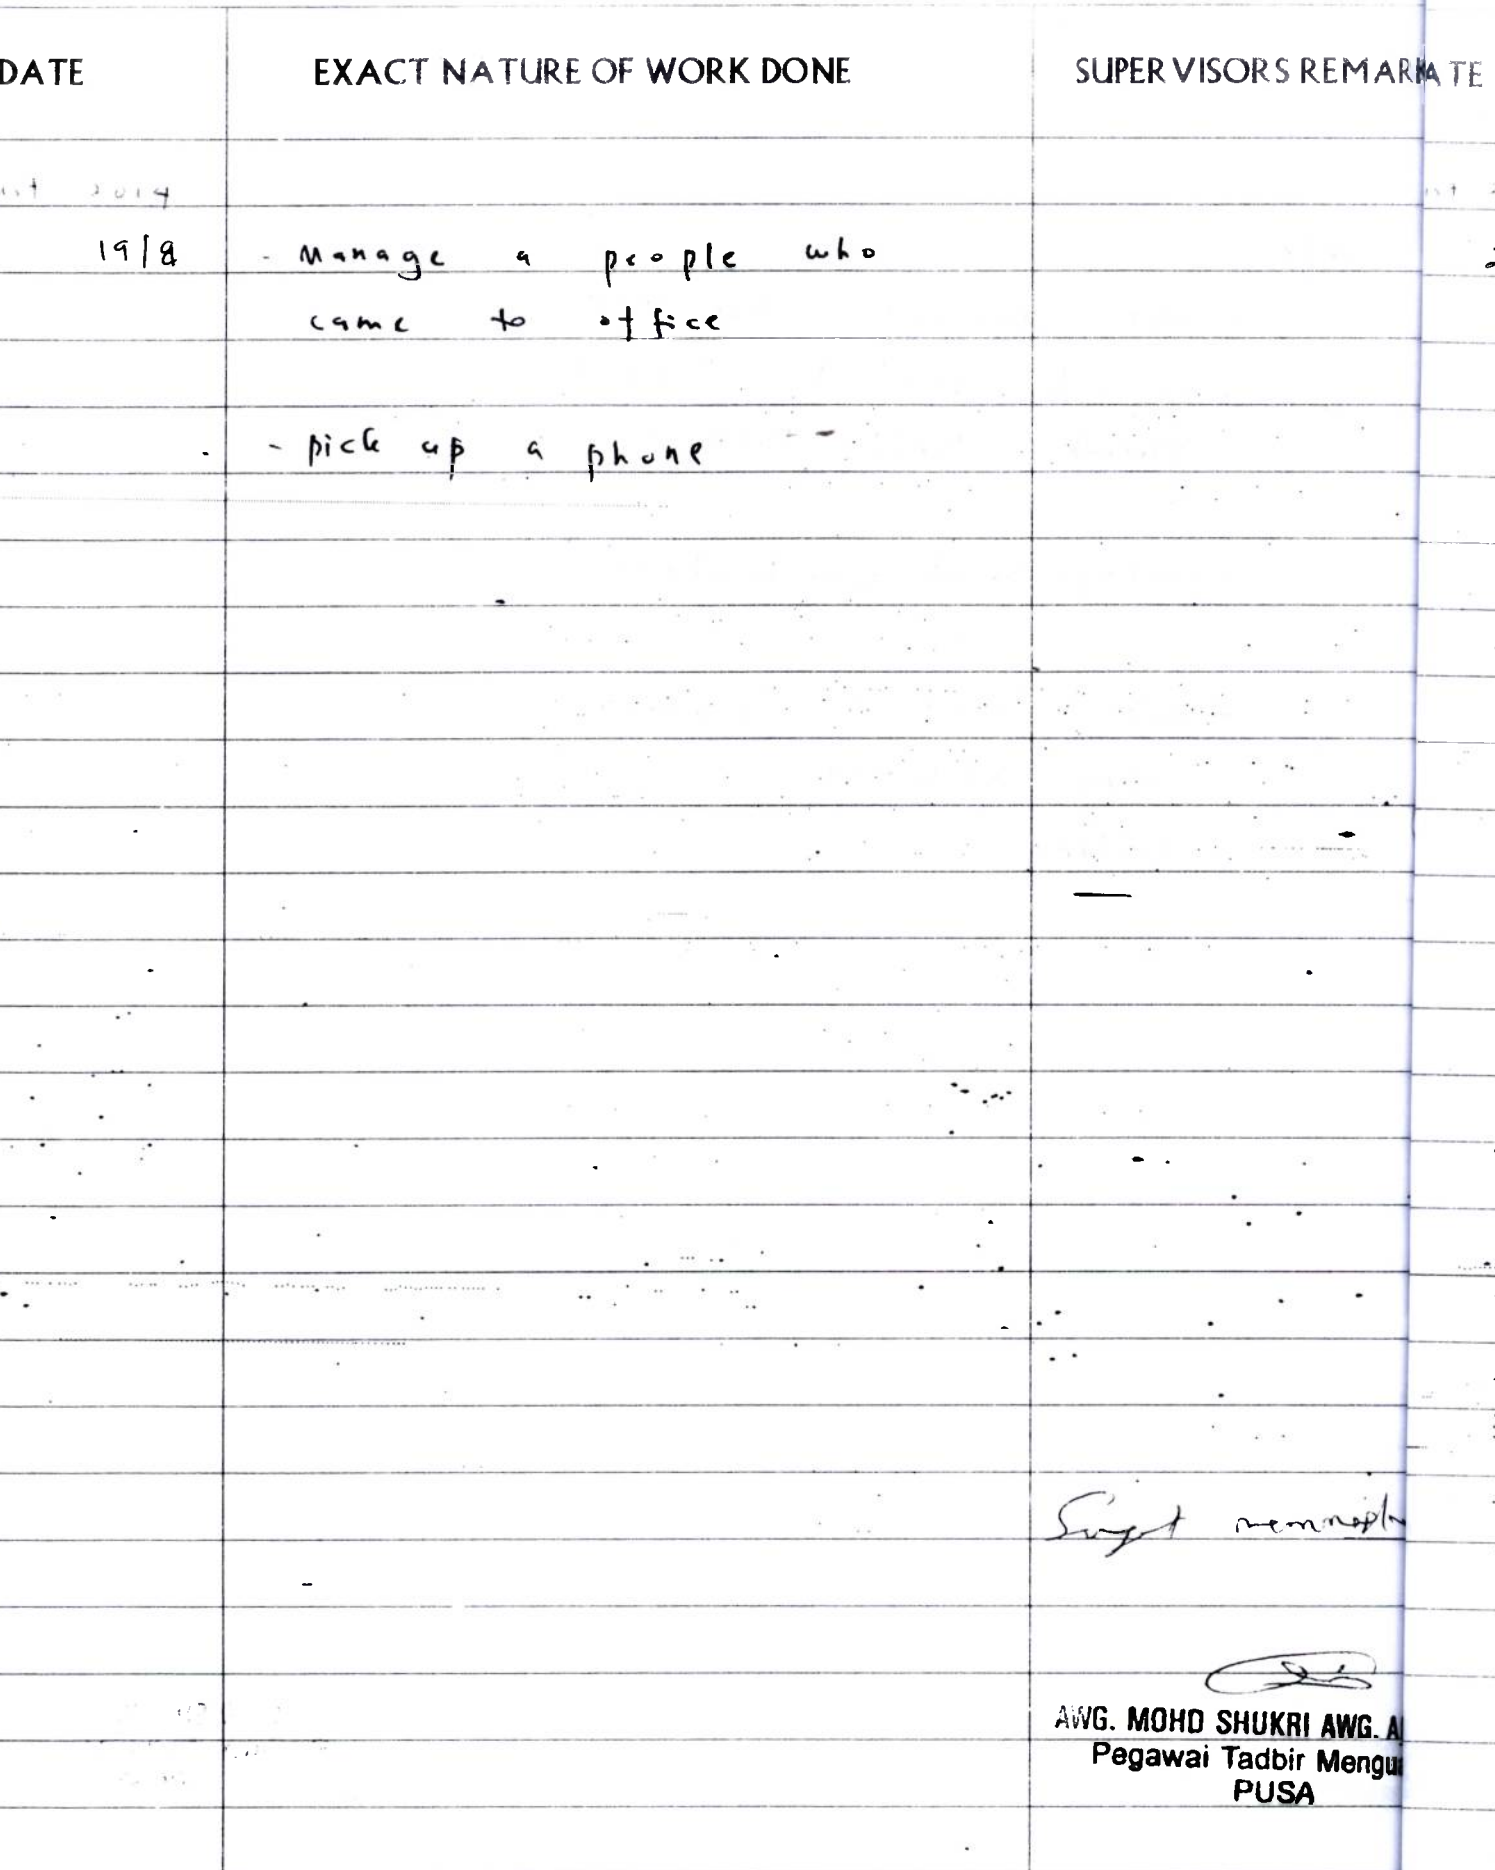 DATE EXACT NATURE OF WORK DONE SUPERVISORS REMAR ATE
2014
19/8 - Manage a people who
came to office
- pick up a phone
AWG. MOHD SHUKRI AWG. A
Pegawai Tadbir Mengu
PUSA